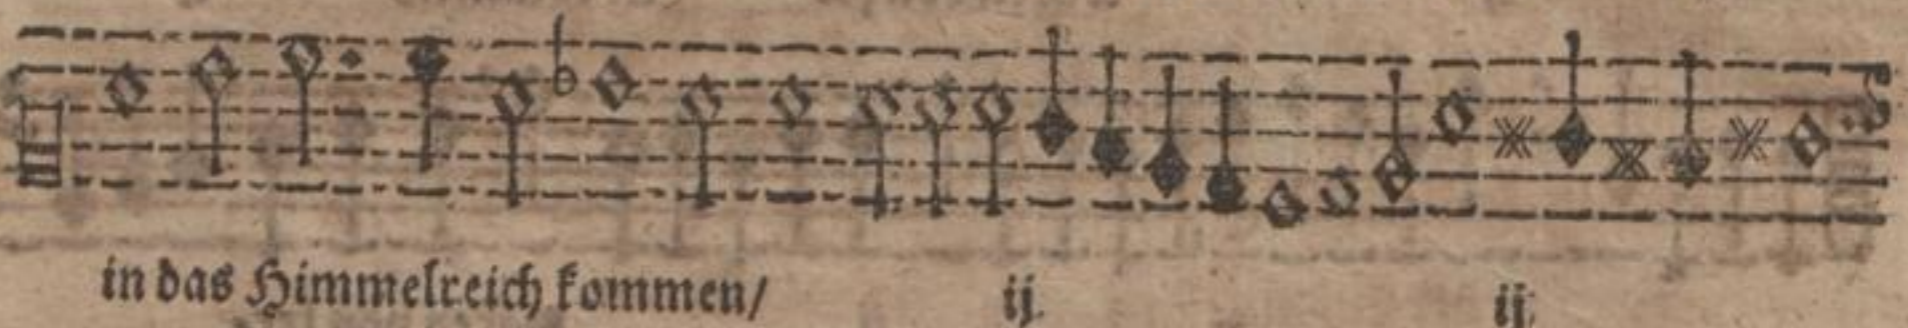 in das Himmelreich kommen/ ij. ij